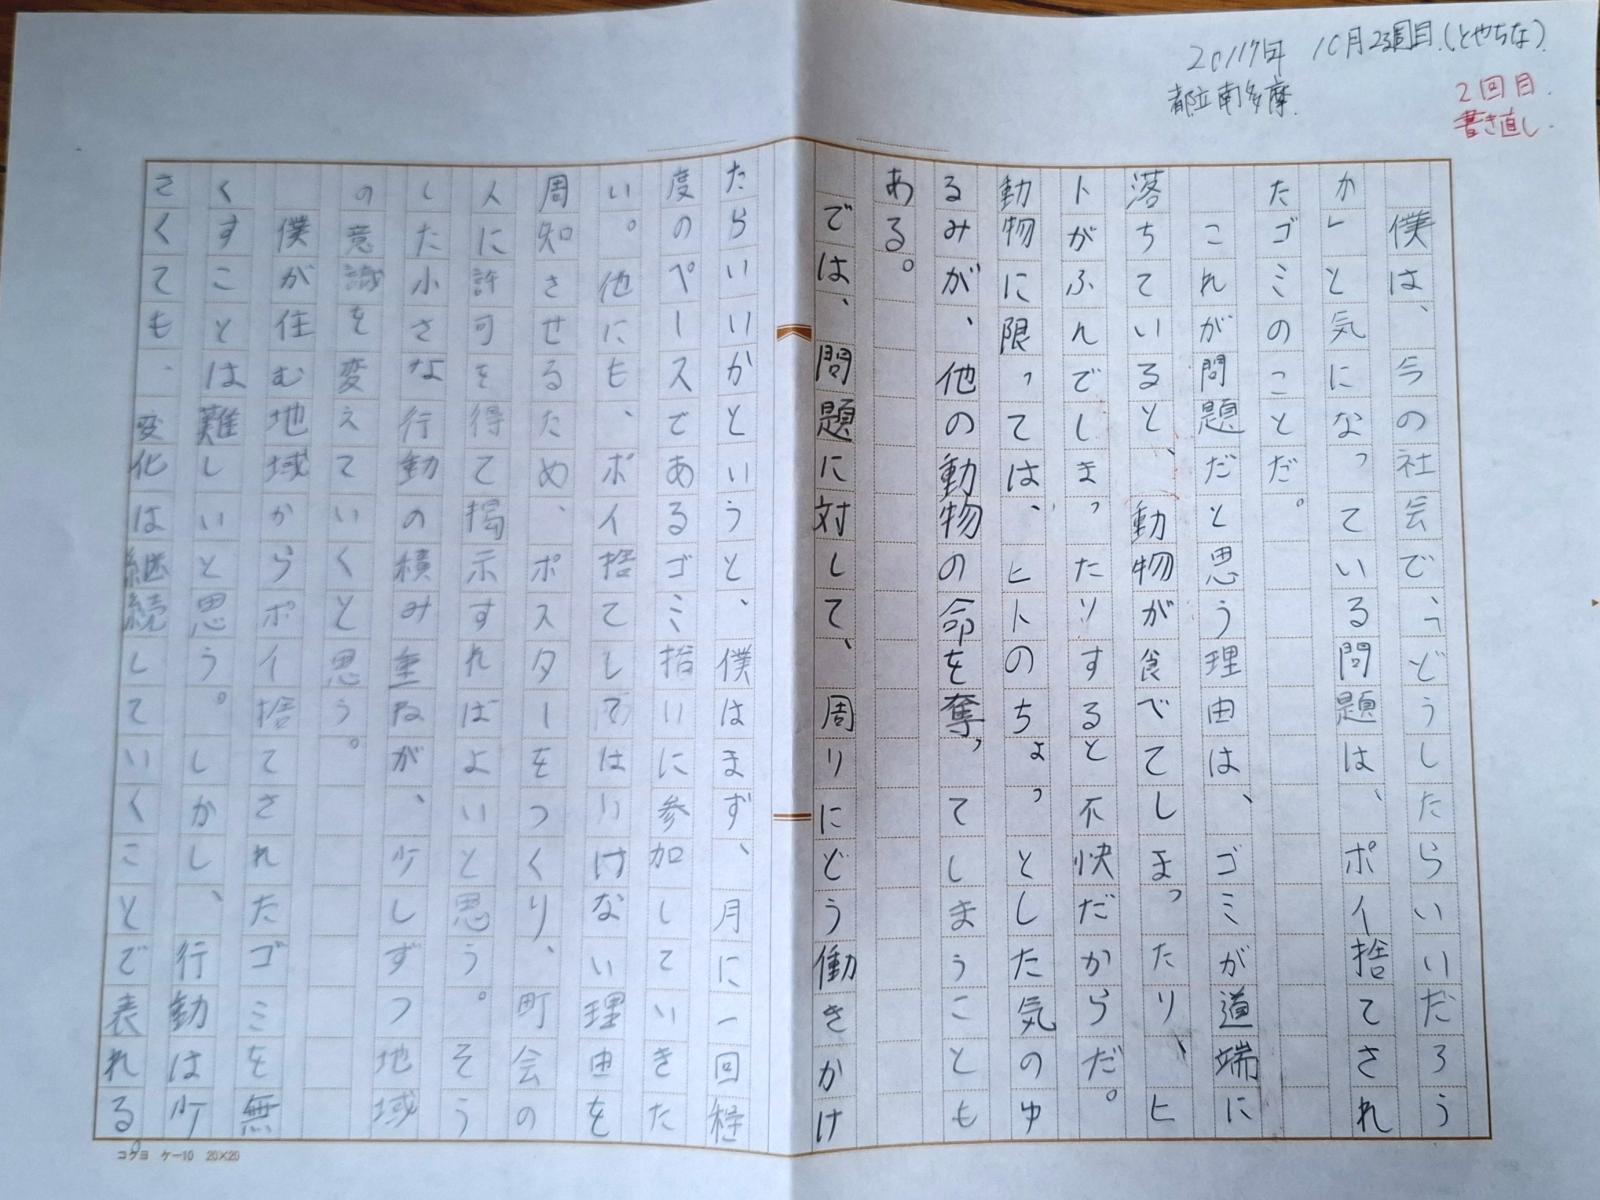 2017年 10月23週目.(とやちな).
都立南多摩.
2回目.
書き直し.
僕は、今の社会で、「どうしたらいいだろう
か」と気になっている問題は、ポイ捨てされ
たゴミのことだ。
これが問題だと思う理由は、ゴミが道端に
落ちていると、動物が食べてしまったり、ヒ
トがふんでしまったりすると不快だからだ。
動物に限っては、ヒトのちょっとした気のゆ
るみが、他の動物の命を奪ってしまうことも
ある。
では、問題に対して、周りにどう働きかけ
たらいいかというと、僕はまず、月に一回程
度のペースであるゴミ拾いに参加していきた
い。他にも、ポイ捨てしてはいけない理由を
周知させるため、ポスターをつくり、町会の
人に許可を得て掲示すればよいと思う。そう
した小さな行動の積み重ねが、少しずつ地域
の意識を変えていくと思う。
僕が住む地域からポイ捨てされたゴミを無
くすことは難しいと思う。しかし、行動は少
さくても、変化は継続していくことで表れる。
コクヨ ケー10 20×20